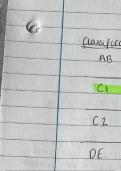 Classific
AB
C1
C2
DE